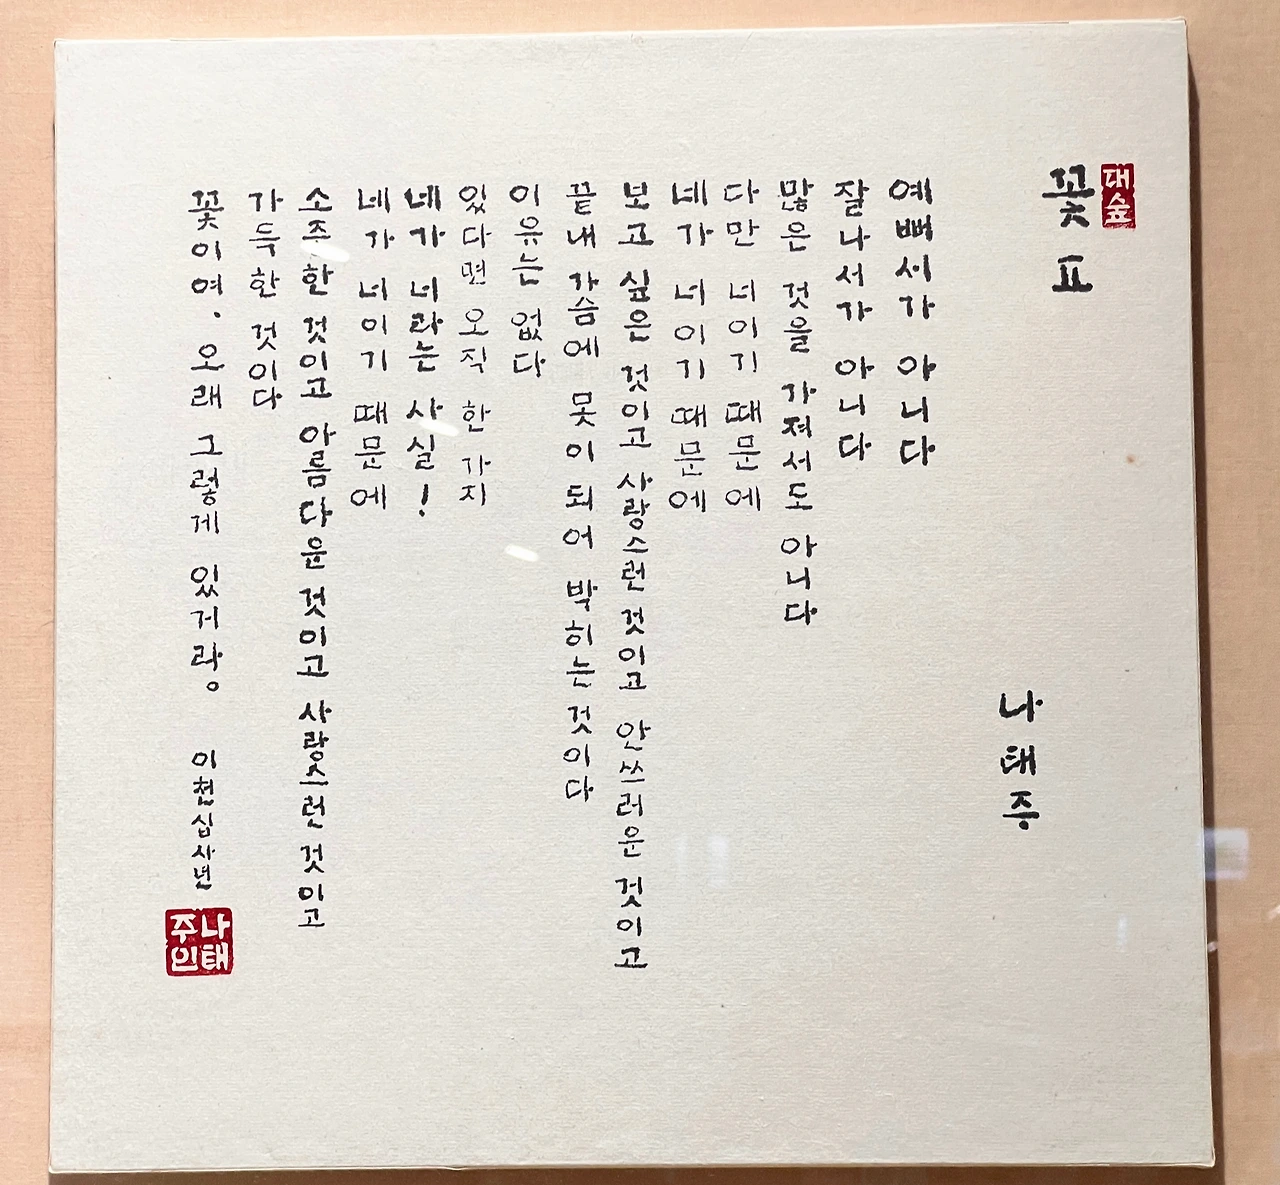 대숲
꽃 Ⅱ
나태주
예뻐서가 아니다
잘나서가 아니다
많은 것을 가져서도 아니다
다만 너이기 때문에
네가 너이기 때문에
보고 싶은 것이고 사랑스런 것이고 안쓰러운 것이고
끝내 가슴에 못이 되어 박히는 것이다
이유는 없다
있다면 오직 한 가지
네가 너라는 사실!
네가 너이기 때문에
소중한 것이고 아름다운 것이고 사랑스런 것이고
가득한 것이다
꽃이여. 오래 그렇게 있거라。 이천십사년
나태주인